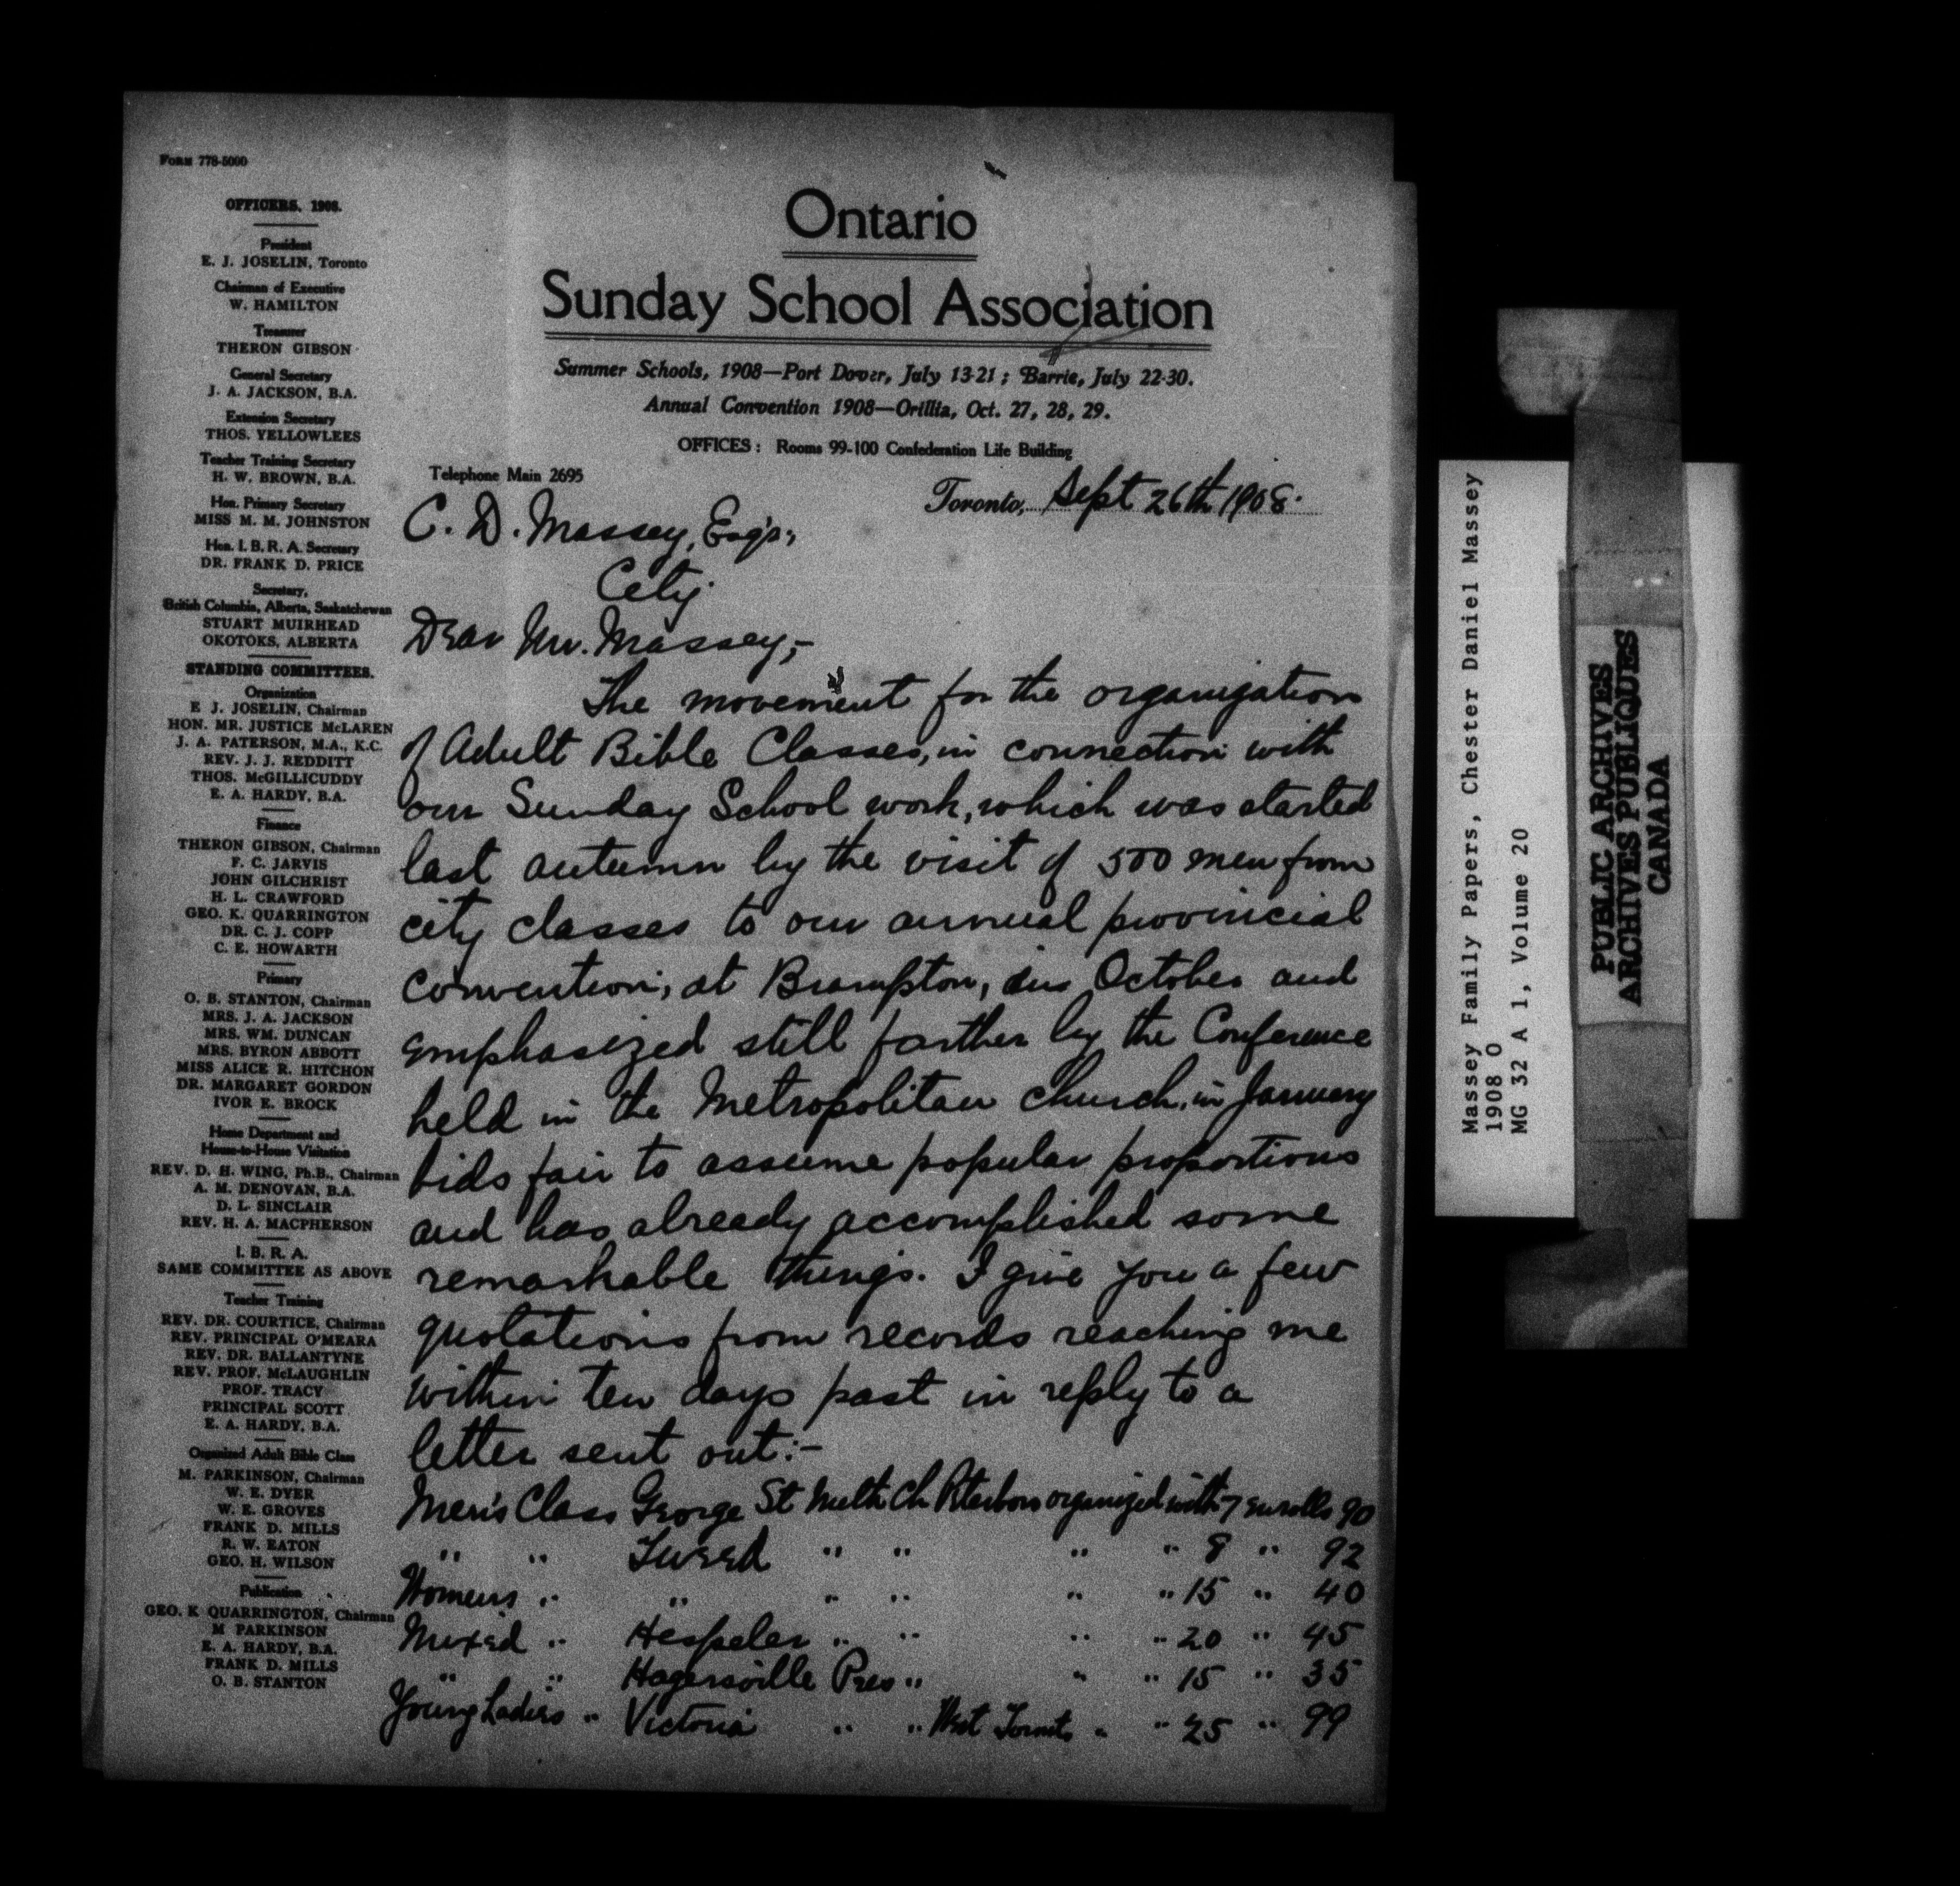 Form 778-5000
OFFICERS, 1908.
President
E. J. JOSELIN, Toronto
Chairman of Executive
W. HAMILTON
Treasurer
THERON GIBSON
General Secretary
J. A. JACKSON, B.A.
Extension Secretary
THOS. YELLOWLEES
Teacher Training Secretary
H. W. BROWN, B.A.
Hon. Primary Secretary
MISS M. M. JOHNSTON
Hon. I. B. R. A. Secretary
DR. FRANK D. PRICE
Secretary,
British Columbia, Alberta, Saskatchewan
STUART MUIRHEAD
OKOTOKS, ALBERTA
STANDING COMMITTEES.
Organization
E J. JOSELIN, Chairman
HON. MR. JUSTICE McLAREN
J. A. PATERSON, M.A., K.C.
REV. J. J. REDDITT
THOS. McGILLICUDDY
E. A. HARDY, B.A.
Finance
THERON GIBSON, Chairman
F. C. JARVIS
JOHN GILCHRIST
H. L. CRAWFORD
GEO. K. QUARRINGTON
DR. C. J. COPP
C. E. HOWARTH
Primary
O. B. STANTON, Chairman
MRS. J. A. JACKSON
MRS. WM. DUNCAN
MRS. BYRON ABBOTT
MISS ALICE R. HITCHON
DR. MARGARET GORDON
IVOR E. BROCK
Home Department and
House-to-House Visitation
REV. D. H. WING, Ph.B., Chairman
A. M. DENOVAN, B.A.
D. L. SINCLAIR
REV. H. A. MACPHERSON
I. B. R. A.
SAME COMMITTEE AS ABOVE
Teacher Training
REV. DR. COURTICE, Chairman
REV. PRINCIPAL O'MEARA
REV. DR. BALLANTYNE
REV. PROF. McLAUGHLIN
PROF. TRACY
PRINCIPAL SCOTT
E. A. HARDY, B.A.
Organized Adult Bible Class
M. PARKINSON, Chairman
W. E. DYER
W. E. GROVES
FRANK D. MILLS
R. W. EATON
GEO. H. WILSON
Publication
GEO. K QUARRINGTON, Chairman
M PARKINSON
E. A. HARDY, B.A.
FRANK D. MILLS
O. B. STANTON
Ontario
Sunday School Association
Summer Schools, 1908—Port Dover, July 13-21; Barrie, July 22-30.
Annual Convention 1908—Orillia, Oct. 27, 28, 29.
OFFICES: Rooms 99-100 Confederation Life Building
Telephone Main 2695
Toronto, Sept 26th 1908.
C. D. Massey, Esqr.,
City
Dear Mr. Massey,-
The movement for the organization
of Adult Bible Classes, in connection with
our Sunday School work, which was started
last autumn by the visit of 500 men from
city classes to our annual provincial
convention, at Brampton, in October and
emphasized still farther by the Conference
held in the Metropolitan church, in January
bids fair to assume popular proportions
and has already accomplished some
remarkable things. I give you a few
quotations from records reaching me
within ten days past in reply to a
letter sent out:-
Men's Class George St Meth Ch Peterboro organized with 7 enrolls 90
" " Tweed " " " " 8 " 92
Womens " " " " " " 15 " 40
Mixed " Hespeler " " " " 20 " 45
" " Hagersville Pres " " " 15 " 35
Young Ladies " Victoria " " West Toronto " " 25 " 99
Massey Family Papers, Chester Daniel Massey
1908 O
MG 32 A 1, Volume 20
PUBLIC ARCHIVES
ARCHIVES PUBLIQUES
CANADA